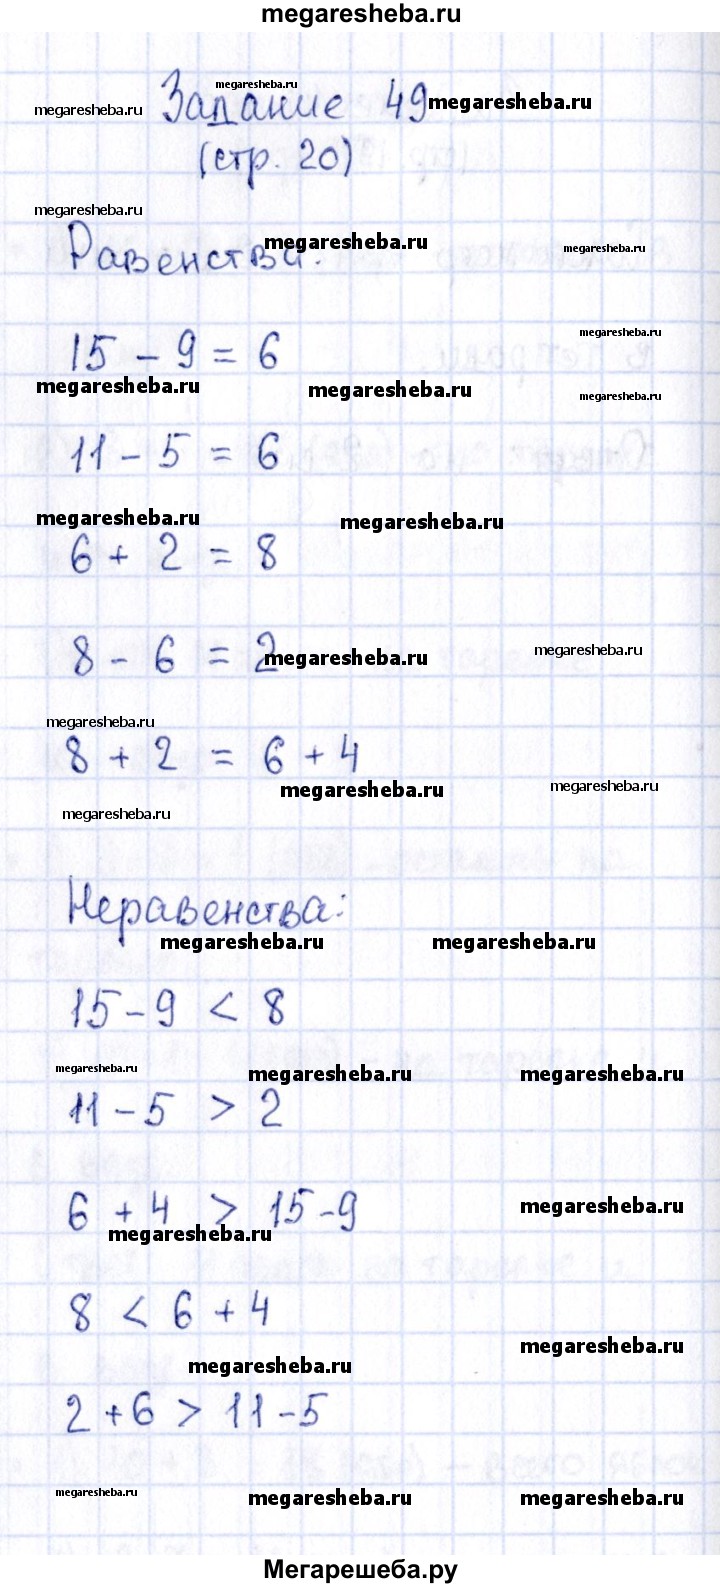 megaresheba.ru
megaresheba.ru
megaresheba.ru Задание 49 megaresheba.ru
(стр. 20)
megaresheba.ru
Равенства: megaresheba.ru megaresheba.ru
megaresheba.ru
15 - 9 = 6
megaresheba.ru megaresheba.ru megaresheba.ru
11 - 5 = 6
megaresheba.ru megaresheba.ru
6 + 2 = 8
8 - 6 = 2 megaresheba.ru megaresheba.ru
megaresheba.ru
8 + 2 = 6 + 4
megaresheba.ru megaresheba.ru
megaresheba.ru
Неравенства:
megaresheba.ru megaresheba.ru
15 - 9 < 8
megaresheba.ru megaresheba.ru megaresheba.ru
11 - 5 > 2
6 + 4 > 15 - 9 megaresheba.ru
megaresheba.ru
8 < 6 + 4
megaresheba.ru
megaresheba.ru
2 + 6 > 11 - 5
megaresheba.ru megaresheba.ru megaresheba.ru
Мегарешеба.ру